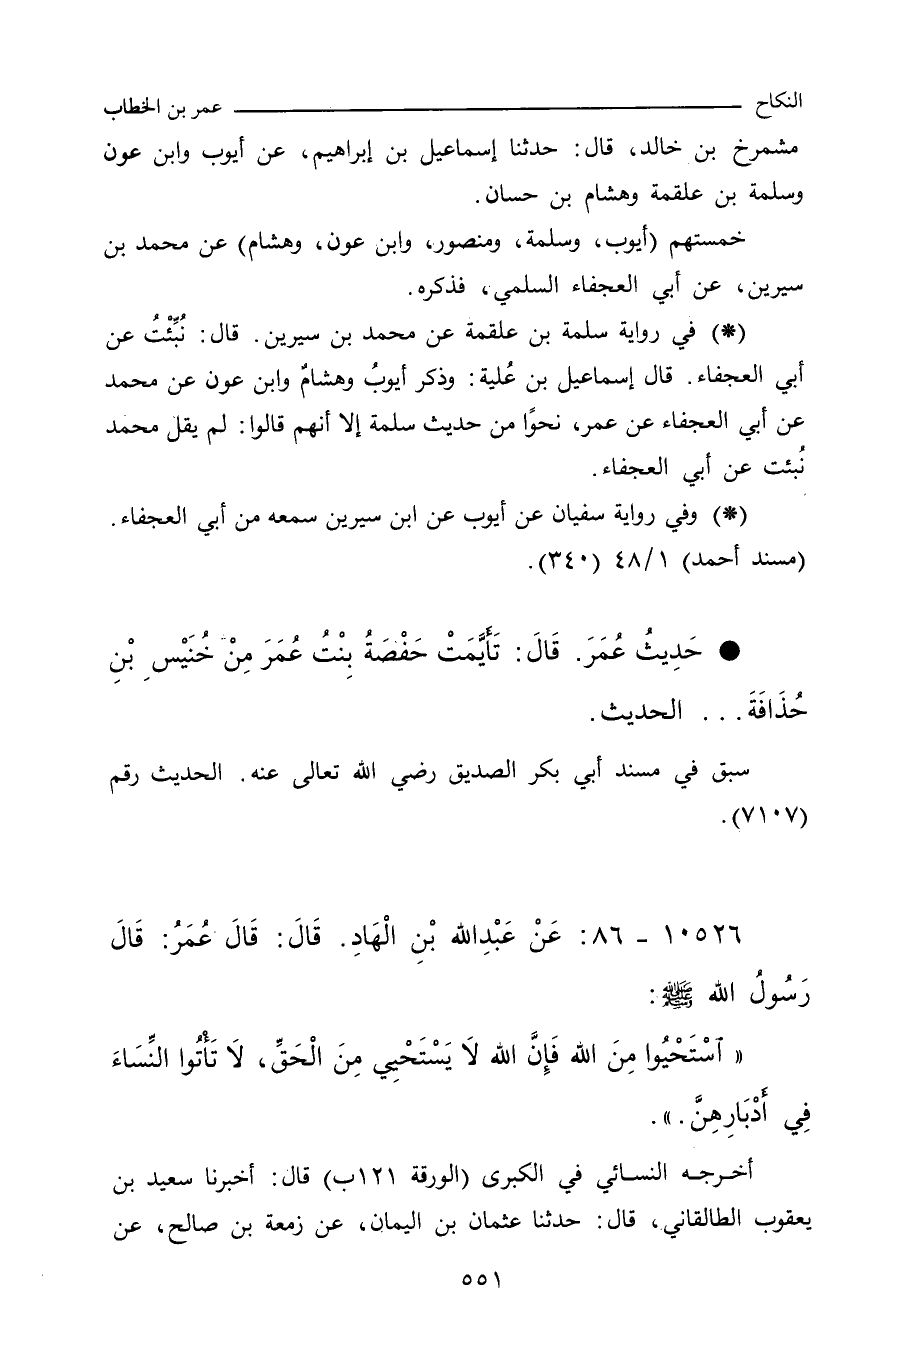 النكاح ـــــــــــــــــ عمر بن الخطاب
مشمرخ بن خالد، قال: حدثنا إسماعيل بن إبراهيم، عن أيوب وابن عون
وسلمة بن علقمة وهشام بن حسان.
خمستهم (أيوب، وسلمة، ومنصور، وابن عون، وهشام) عن محمد بن
سيرين، عن أبي العجفاء السلمي، فذكره.
(*) في رواية سلمة بن علقمة عن محمد بن سيرين. قال: نُبِّئْتُ عن
أبي العجفاء. قال إسماعيل بن عُلية: وذكر أيوبُ وهشامٌ وابن عون عن محمد
عن أبي العجفاء عن عمر، نحوًا من حديث سلمة إلا أنهم قالوا: لم يقل محمد
نُبئت عن أبي العجفاء.
(*) وفي رواية سفيان عن أيوب عن ابن سيرين سمعه من أبي العجفاء.
(مسند أحمد) ٤٨/١ (٣٤٠).
● حَدِيثُ عُمَرَ. قَالَ: تَأَيَّمَتْ حَفْصَةُ بِنْتُ عُمَرَ مِنْ خُنَيْسِ بْنِ
حُذَافَةَ... الحديث.
سبق في مسند أبي بكر الصديق رضي الله تعالى عنه. الحديث رقم
(٧١٠٧).
١٠٥٢٦ - ٨٦: عَنْ عَبْدِالله بْنِ الْهَادِ. قَالَ: قَالَ عُمَرُ: قَالَ
رَسُولُ الله ﷺ:
« ٱسْتَحْيُوا مِنَ الله فَإِنَّ الله لَا يَسْتَحْيِي مِنَ الْحَقِّ، لَا تَأْتُوا النِّسَاءَ
فِي أَدْبَارِهِنَّ.».
أخرجه النسائي في الكبرى (الورقة ١٢١ب) قال: أخبرنا سعيد بن
يعقوب الطالقاني، قال: حدثنا عثمان بن اليمان، عن زمعة بن صالح، عن
٥٥١